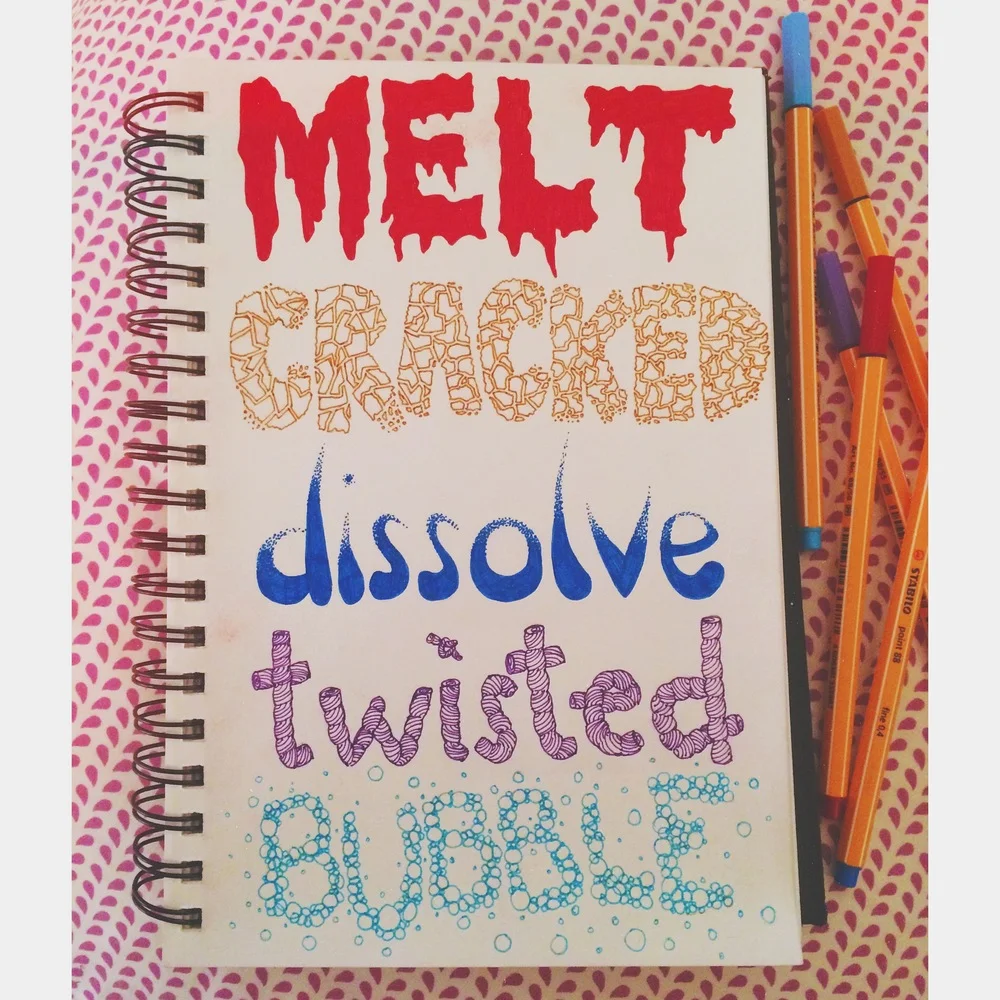 MELT
CRACKED
dissolve
twisted
BUBBLE
STABILO point 88 fine 0.4